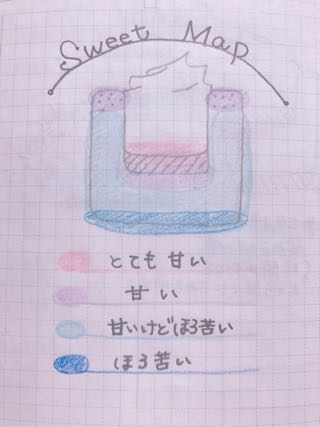 Sweet Map
とても甘い
甘い
甘いけどほろ苦い
ほろ苦い